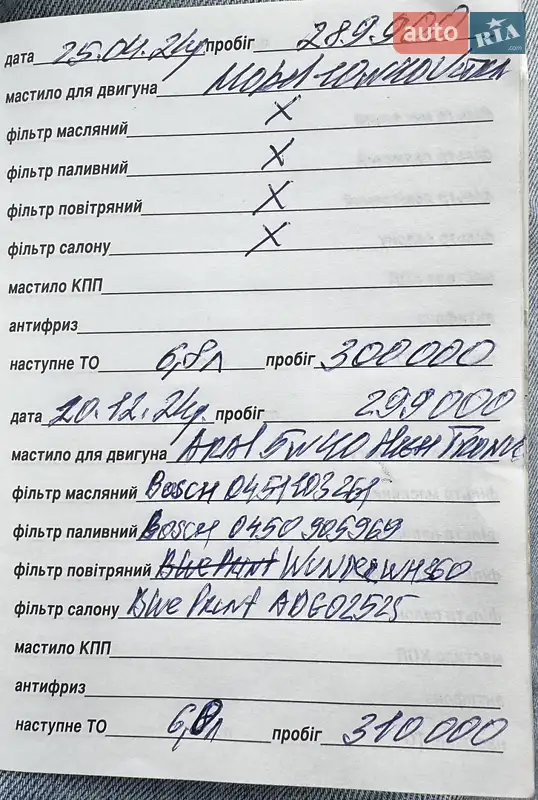 auto RIA .com
дата 25.04.24р пробіг 289.900
мастило для двигуна Mobil 10W40 Ultra
фільтр масляний X
фільтр паливний X
фільтр повітряний X
фільтр салону X
мастило КПП
антифриз
наступне ТО 6,8л пробіг 300000
дата 20.12.24р. пробіг 299000
мастило для двигуна ARAL 5W40 High Tronic
фільтр масляний Bosch 0451103261
фільтр паливний Bosch 0450905969
фільтр повітряний Blue Print Wunder WH360
фільтр салону Blue Print ADG02525
мастило КПП
антифриз
наступне ТО 6,8л пробіг 310000